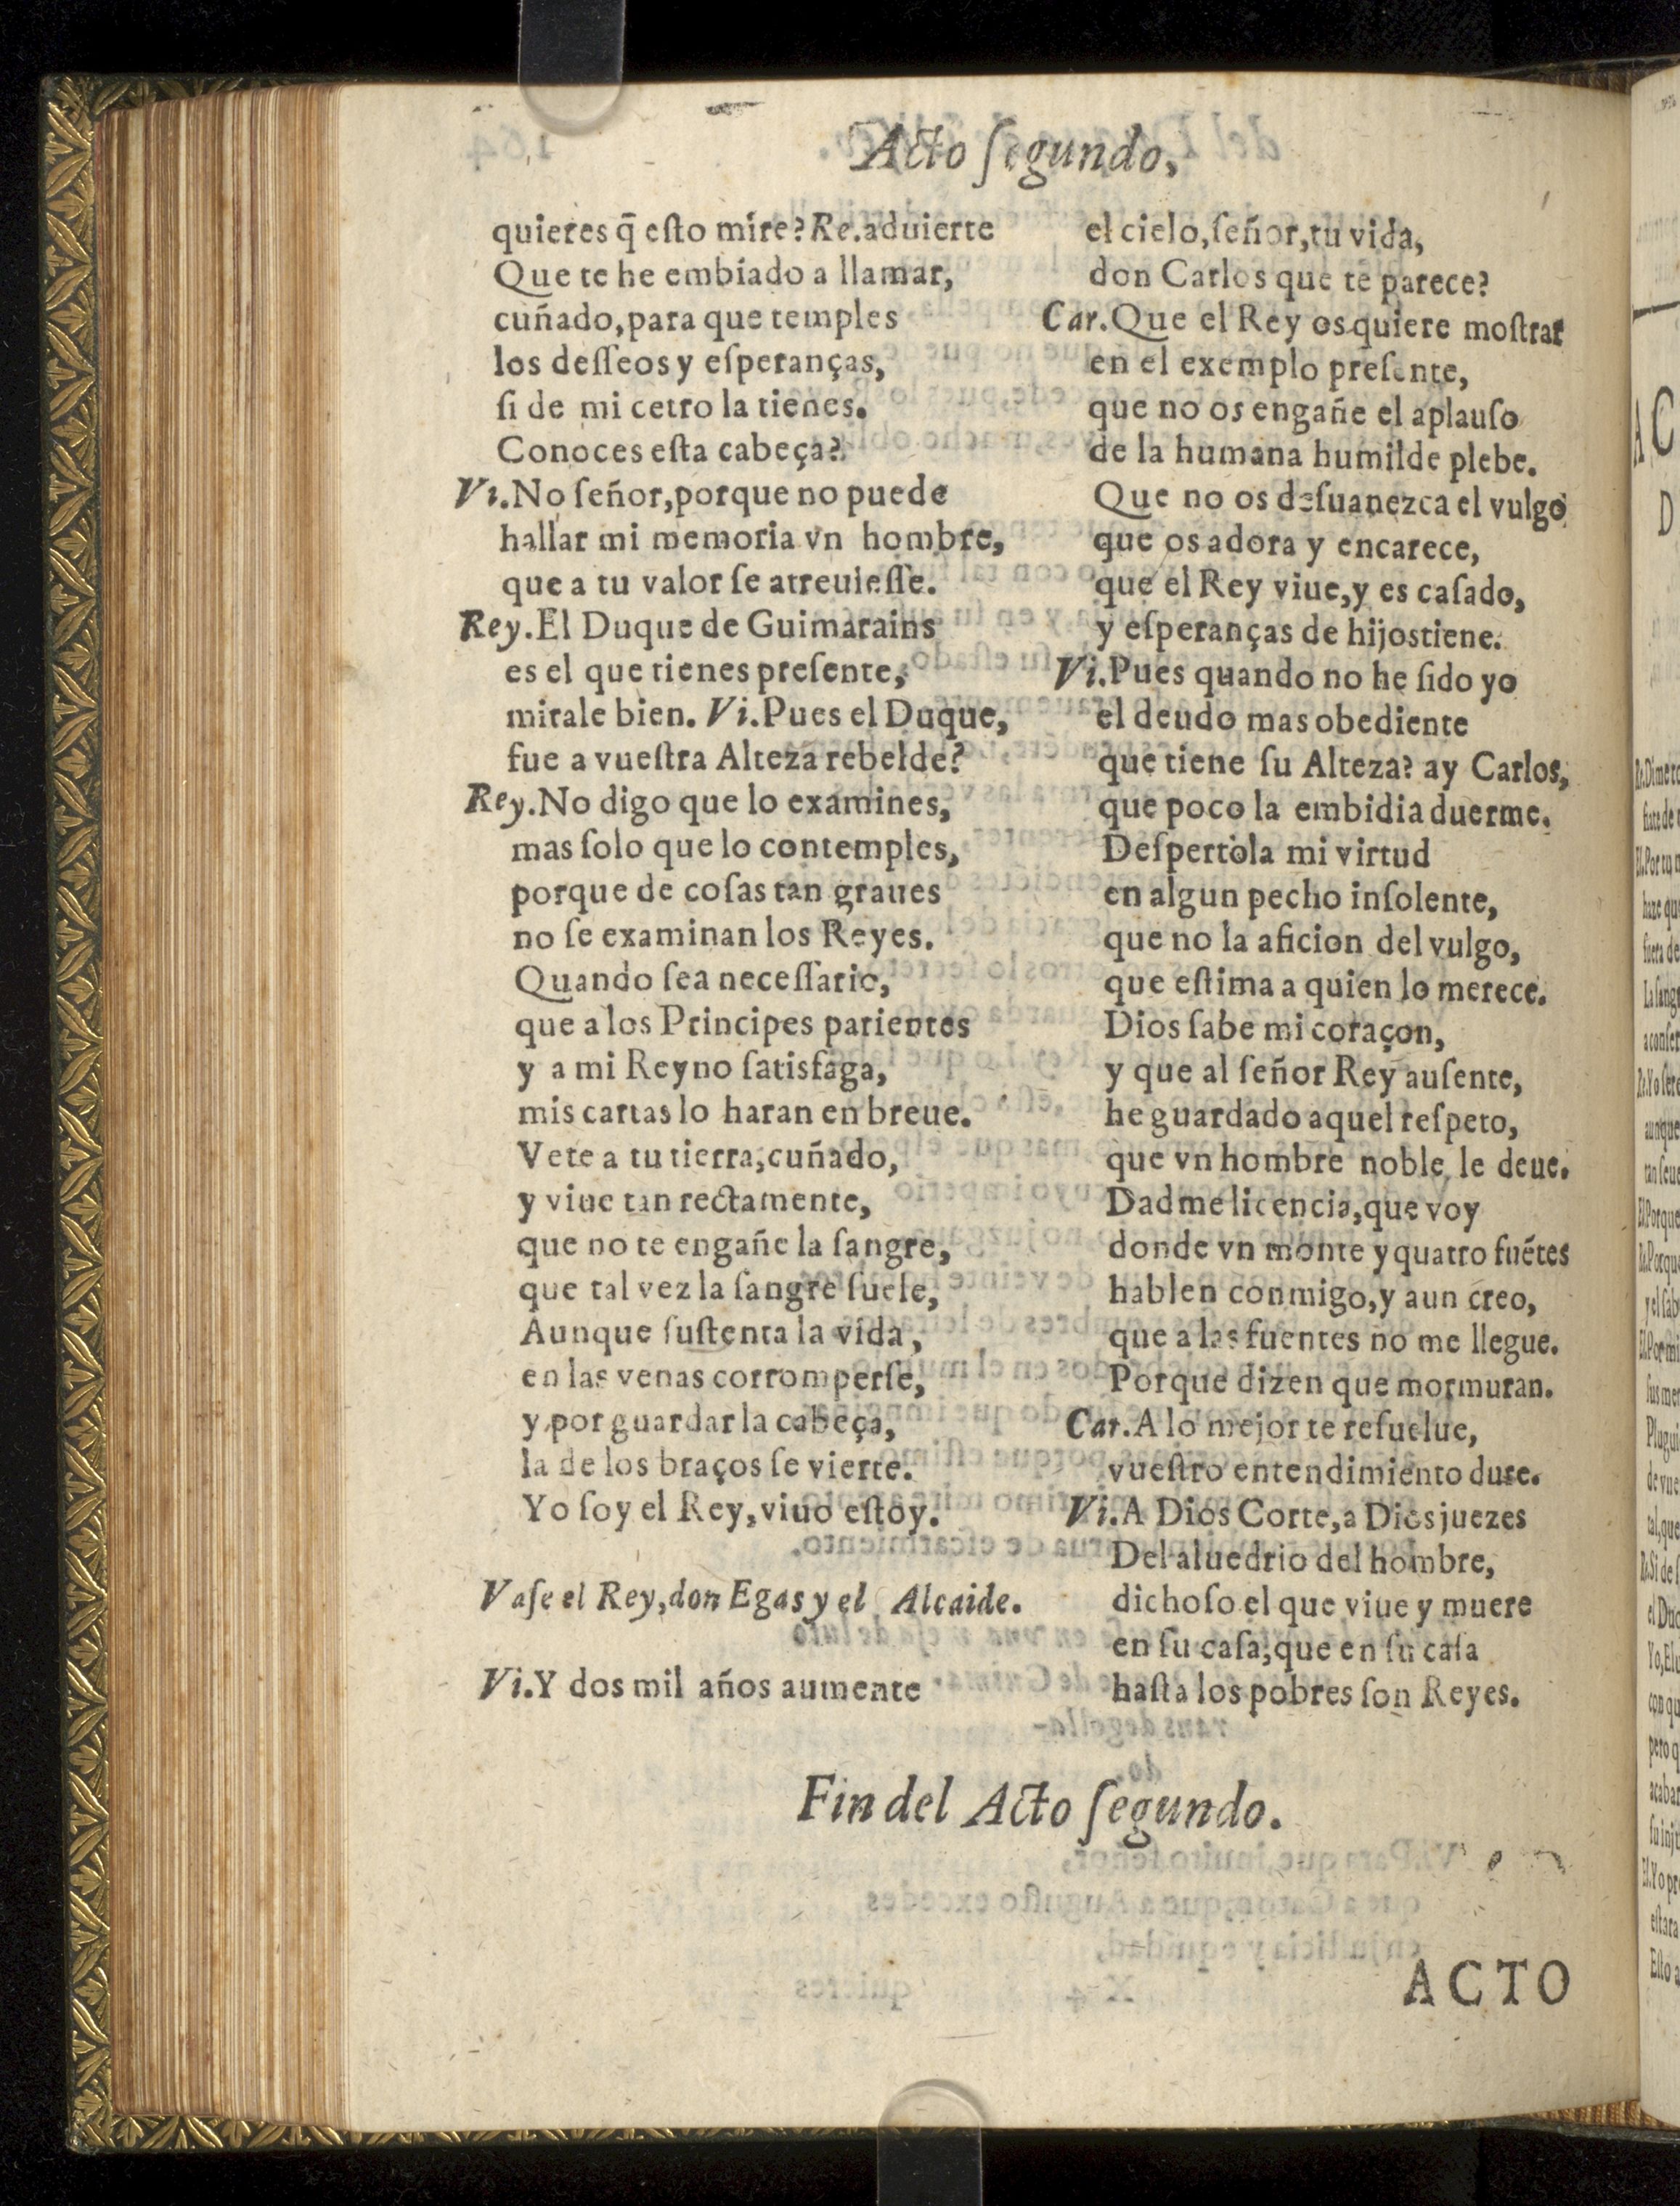 Acto ſegundo,
quieres q̄ eſto mire? Re. aduierte
Que te he embiado a llamar,
cuñado, para que temples
los deſſeos y eſperanças,
ſi de mi cetro la tienes.
Conoces eſta cabeça?
Vi. No ſeñor, porque no puede
hallar mi memoria vn hombre,
que a tu valor ſe atreuieſſe.
Rey. El Duque de Guimarains
es el que tienes preſente,
mirale bien. Vi. Pues el Duque,
fue a vueſtra Alteza rebelde?
Rey. No digo que lo examines,
mas ſolo que lo contemples,
porque de coſas tan graues
no ſe examinan los Reyes.
Quando ſea neceſſario,
que a los Principes parientes
y a mi Reyno ſatisfaga,
mis cartas lo haran en breue.
Vete a tu tierra, cuñado,
y viue tan rectamente,
que no te engañe la ſangre,
que tal vez la ſangre ſuele,
Aunque ſuſtenta la vida,
en las venas corromperſe,
y por guardar la cabeça,
la de los braços ſe vierte.
Yo ſoy el Rey, viuo eſtoy.
Vaſe el Rey, don Egas y el Alcaide.
Vi. Y dos mil años aumente
el cielo, ſeñor, tu vida,
don Carlos que te parece?
Car. Que el Rey os quiere moſtrar
en el exemplo preſente,
que no os engañe el aplauſo
de la humana humilde plebe.
Que no os deſuanezca el vulgo
que os adora y encarece,
que el Rey viue, y es caſado,
y eſperanças de hijos tiene.
Vi. Pues quando no he ſido yo
el deudo mas obediente
que tiene ſu Alteza? ay Carlos,
que poco la embidia duerme.
Deſpertòla mi virtud
en algun pecho inſolente,
que no la aficion del vulgo,
que eſtima a quien lo merece.
Dios ſabe mi coraçon,
y que al ſeñor Rey auſente,
he guardado aquel reſpeto,
que vn hombre noble le deue.
Dadme licencia, que voy
donde vn monte y quatro fuétes
hablen conmigo, y aun creo,
que a las fuentes no me llegue.
Porque dizen que mormuran.
Car. A lo mejor te reſuelue,
vueſtro entendimiento dure.
Vi. A Dios Corte, a Dios juezes
Del aluedrio del hombre,
dichoſo el que viue y muere
en ſu caſa, que en ſu caſa
haſta los pobres ſon Reyes.
Fin del Acto ſegundo.
ACTO